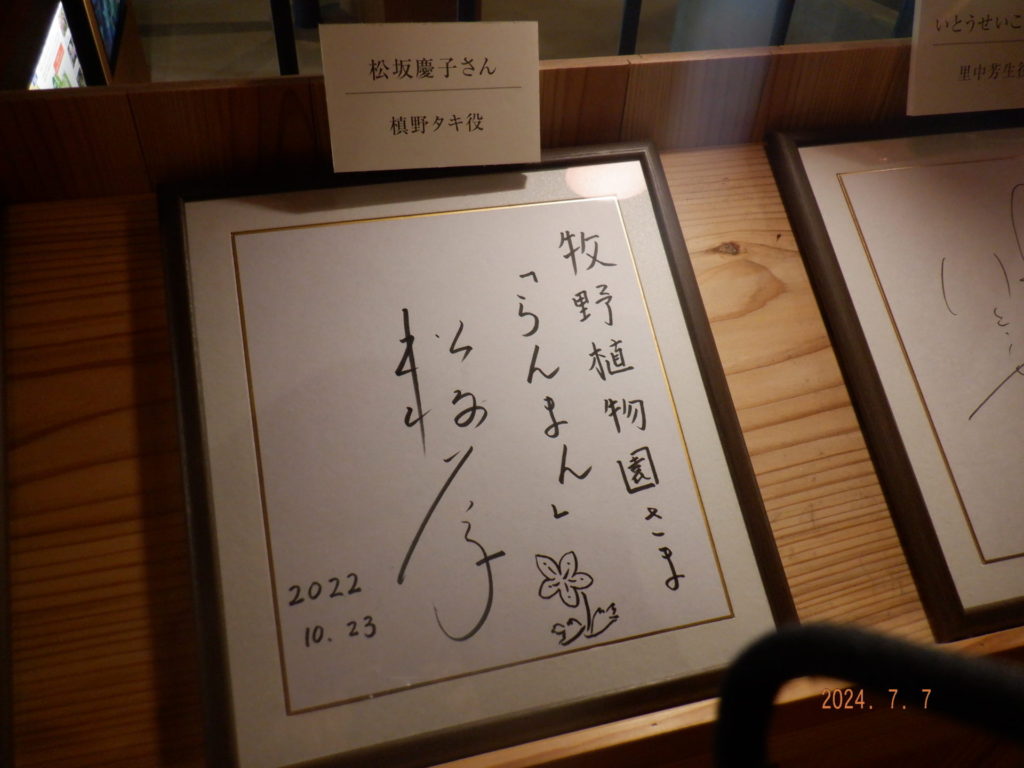 松坂慶子さん
槙野タキ役
いとうせいこ
里中芳生役
牧野植物園さま
「らんまん」
2022
10. 23
2024. 7. 7